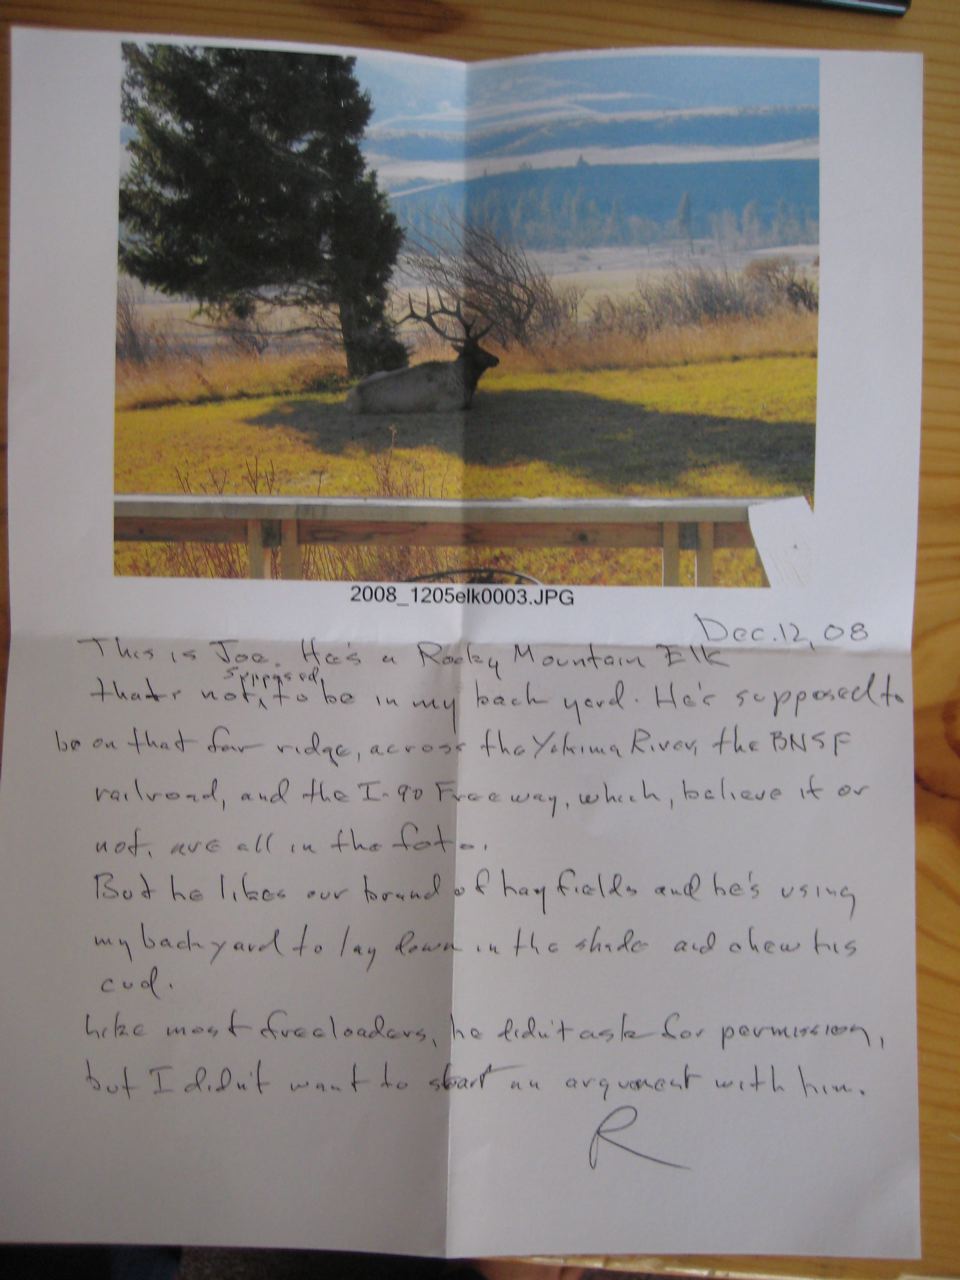 2008_1205elk0003.JPG
Dec. 12, 08
This is Joe. He's a Rocky Mountain Elk
that's not supposed to be in my back yard. He's supposed to
be on that far ridge, across the Yakima River, the BNSF
railroad, and the I-90 Freeway, which, believe it or
not, are all in the foto.
But he likes our brand of hay fields and he's using
my back yard to lay down in the shade and chew his
cud.
Like most freeloaders, he didn't ask for permission,
but I didn't want to start an argument with him.
R